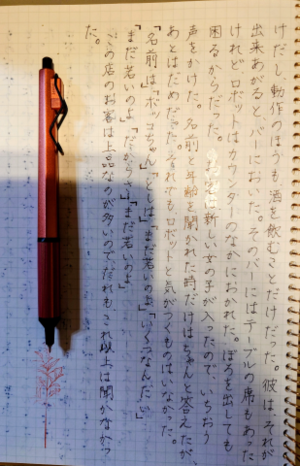 けだし、動作のほうも、酒を飲むことだけだった。彼は、それが
出来あがると、バーにおいた。そのバーにはテーブルの席もあった
けれど、ロボットはカウンターのなかにおかれた。ぼろを出しても
困るからだった。
新しい女の子が入ったので、いちおう
声をかけた。名前と年齢を聞かれた時だけはちゃんと答えたが、
あとはだめだった。それでも、ロボットと気がつくものはいなかった。
「名前は」「ボッコちゃん」「としは」「まだ若いのよ」「いくつなんだい」
「まだ若いのよ」「だからさ」「まだ若いのよ」
この店のお客は上品なのが多いので、だれも、これ以上は聞かなかっ
た。